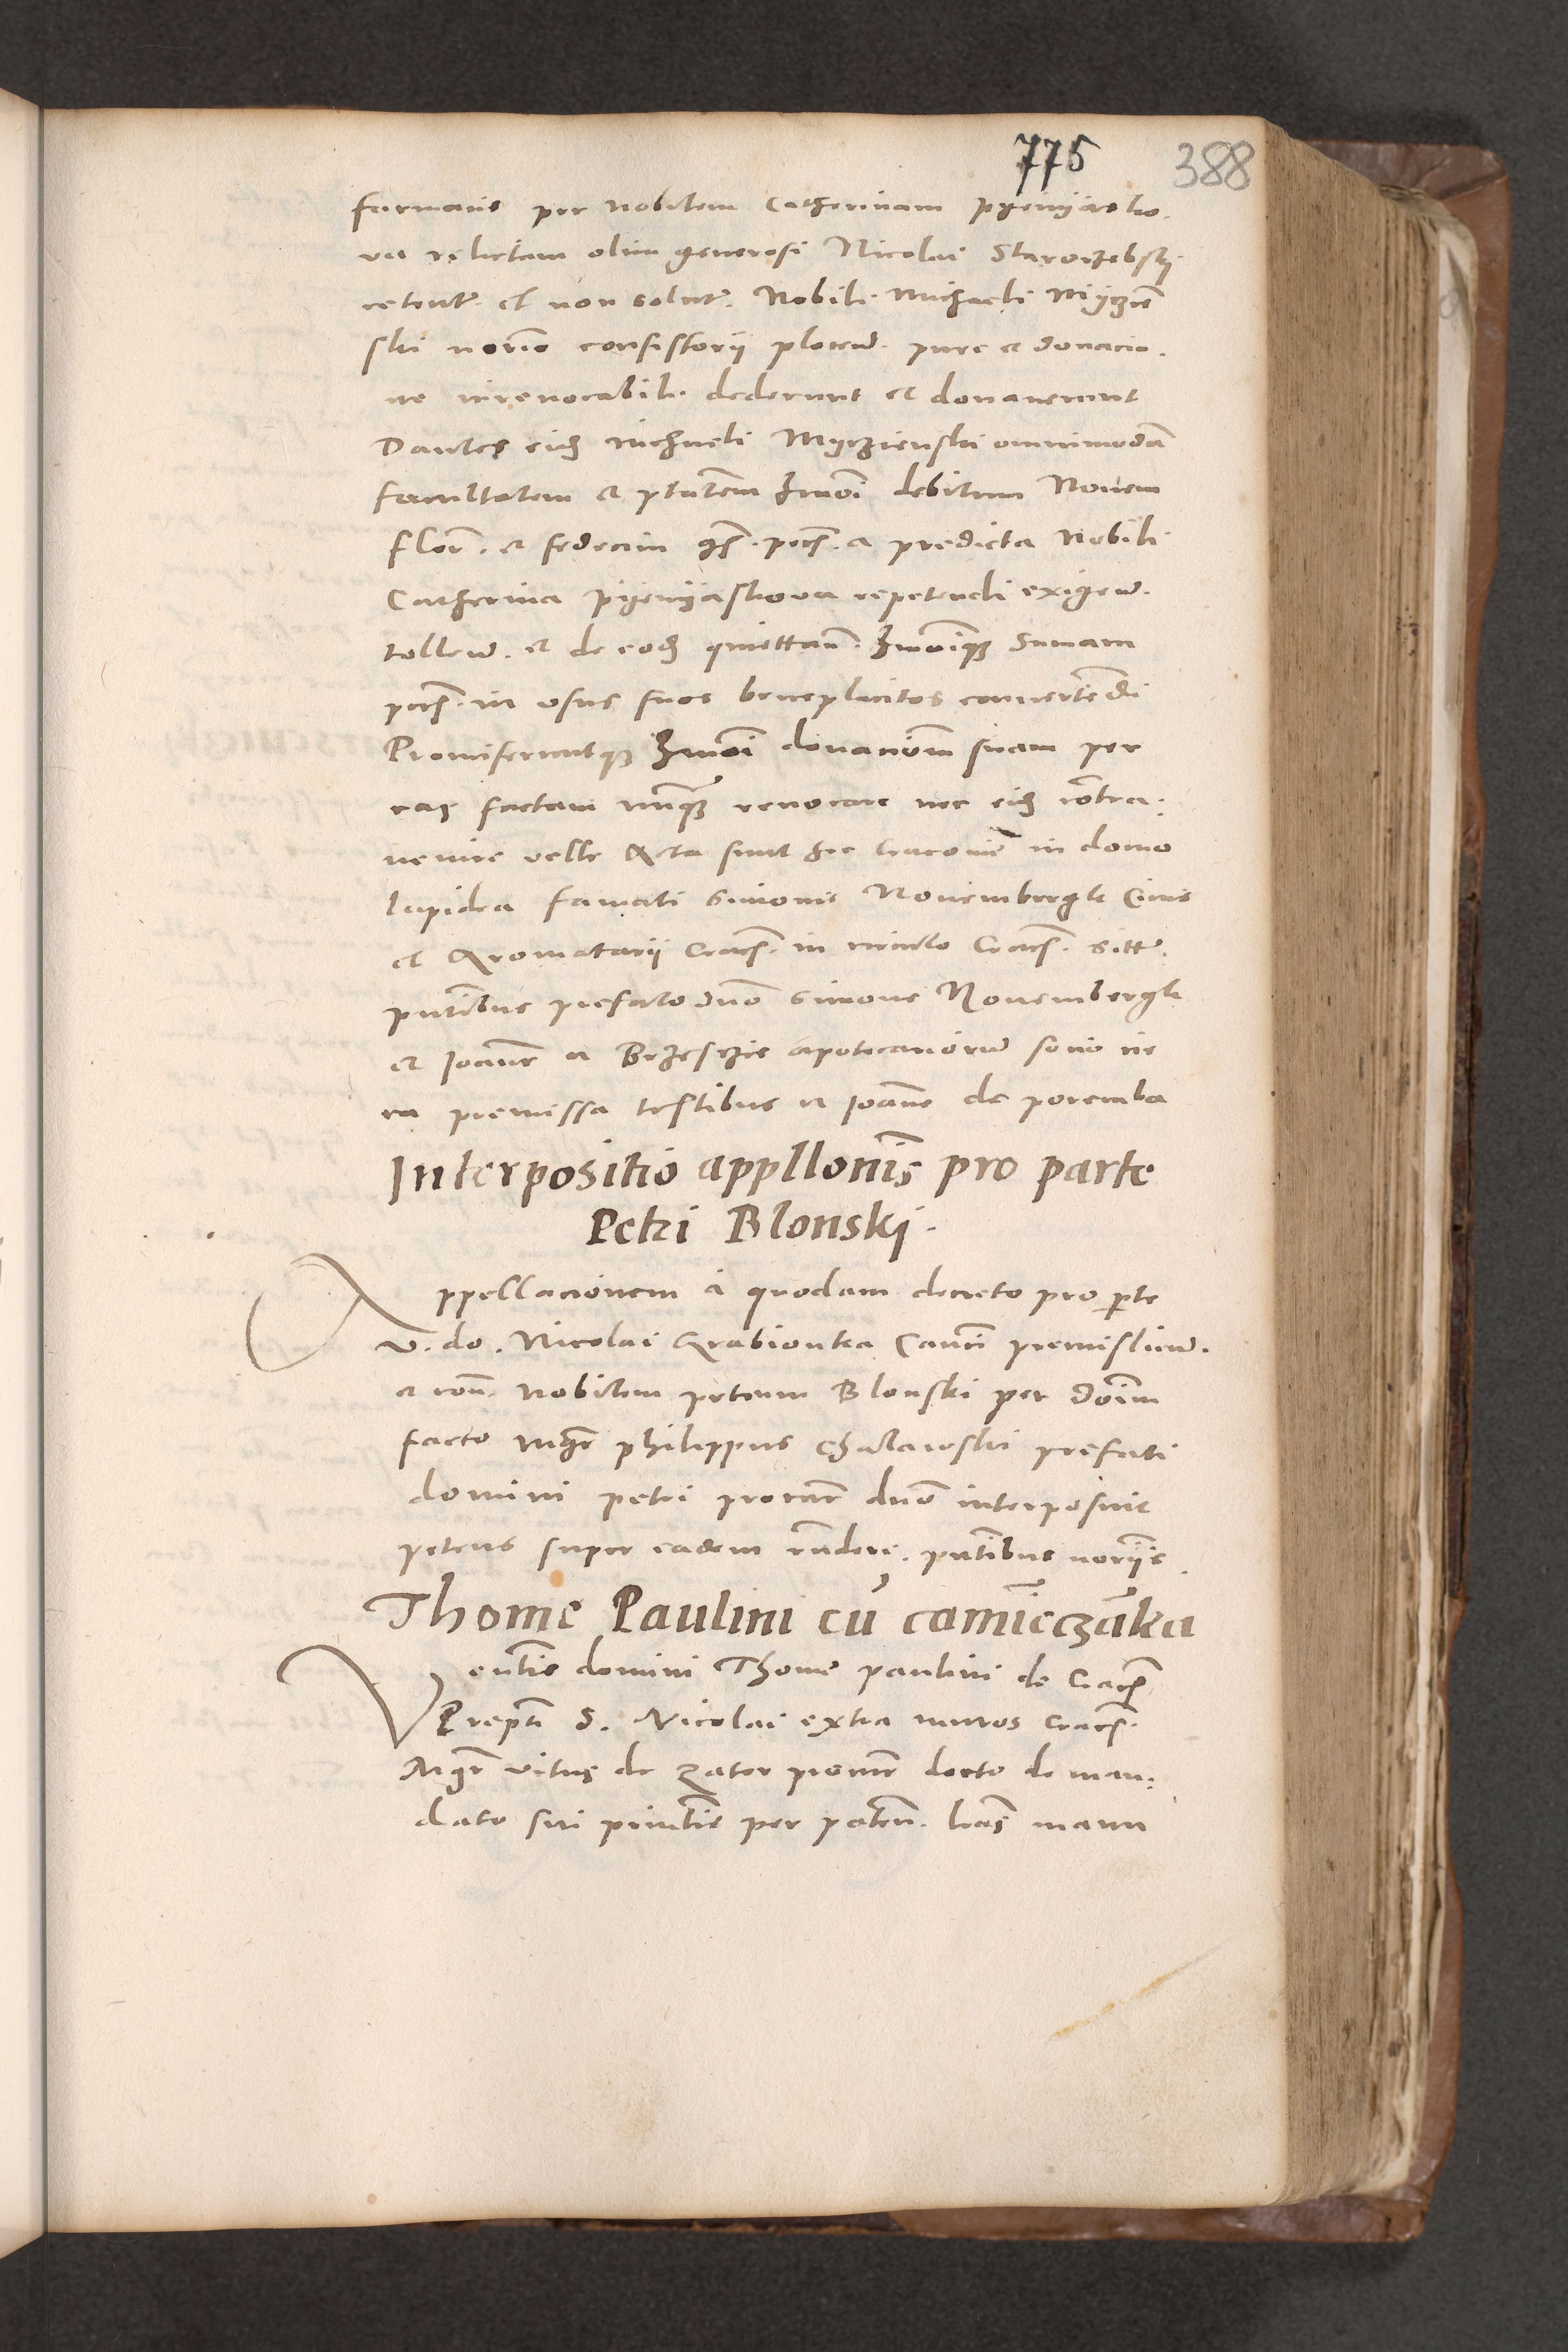 775 388
farmanis per nobilem Catherinam Pyenyasko.
va relictam olim generosi Nicolai Starorzebsky
retent. et non solut. Nobili Michaeli Myszie
ski notario consistorii plocen. pure et donacio.
ne irrevocabili dederunt et donaverunt
Dantes eid Michaeli Myszienski omnimodã
facultatem et ptatem hmoi debitum Novem
flor. et sedecim gs. pecs. a predicta Nobili
Catherina Pyenyaskova repetendi exigend.
tollend. et de eod quiettan. hmoique Sumam
pecs. in usus suos beneplacitos convertedi
Promiseruntque hmoi donacionem suam per
eas factam nunque revocare nec eid contra.
venire velle Acta sunt hec Cracovie in domo
lapidea famati Simonis Novembergk Civis
et Aromatarii Cracs. in circulo Cracs. sitt.
pntibus prefato dno Simone Novembergk
et Joanne a Brzesczie apotecariorum socio
premissa testibus et Joanne de poremba
Interpositio appllonis pro parte
Petri Blonski.
Appellacionem a quodam decreto pro parte
V. do. Nicolai Grabionka Canci premislien.
et con. nobilem petrum Blonski per doim
facto mgr philippus Chulawski prefati
domini petri procur duo interposuit
petens super eadem rndere. pntibus noriis.
Thome Paulini cu camieczãka
Ventis domini Thome paulini de Cracs
Prepti S. Nicolai extra muros Cracs.
Mgr vitus de Zator procur docto de man.
dato sui pinctis per paten. lras manu